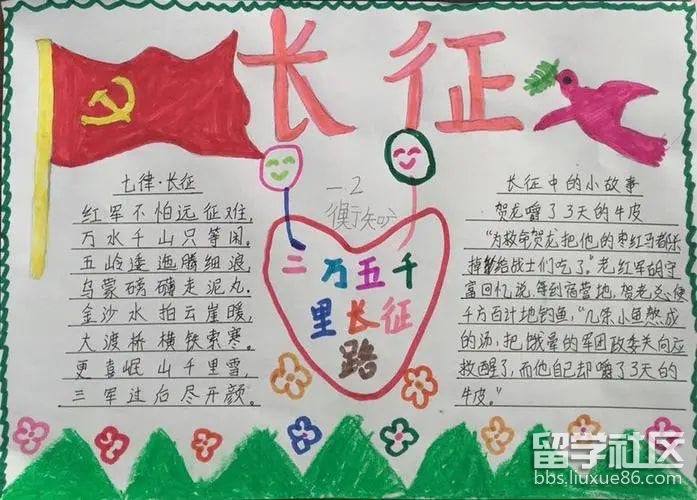 长征
七律·长征
红军不怕远征难,
万水千山只等闲。
五岭逶迤腾细浪,
乌蒙磅礴走泥丸.
金沙水拍云崖暖,
大渡桥横铁索寒。
更喜岷山千里雪,
三军过后尽开颜。
一2
二万五千
里长征
路
长征中的小故事
贺龙嚼了3天的牛皮
“为救命贺龙把他的枣红马都杀
掉给战士们吃了”老红军胡守
富回忆说,每到宿营地,贺老总便
千方百计地钓鱼,“几条小鱼熬成
的汤,把饿晕的军团政委关向应
救醒了,而他自己却嚼了3天的
牛皮。”
留学社区
bbs.liuxue86.com